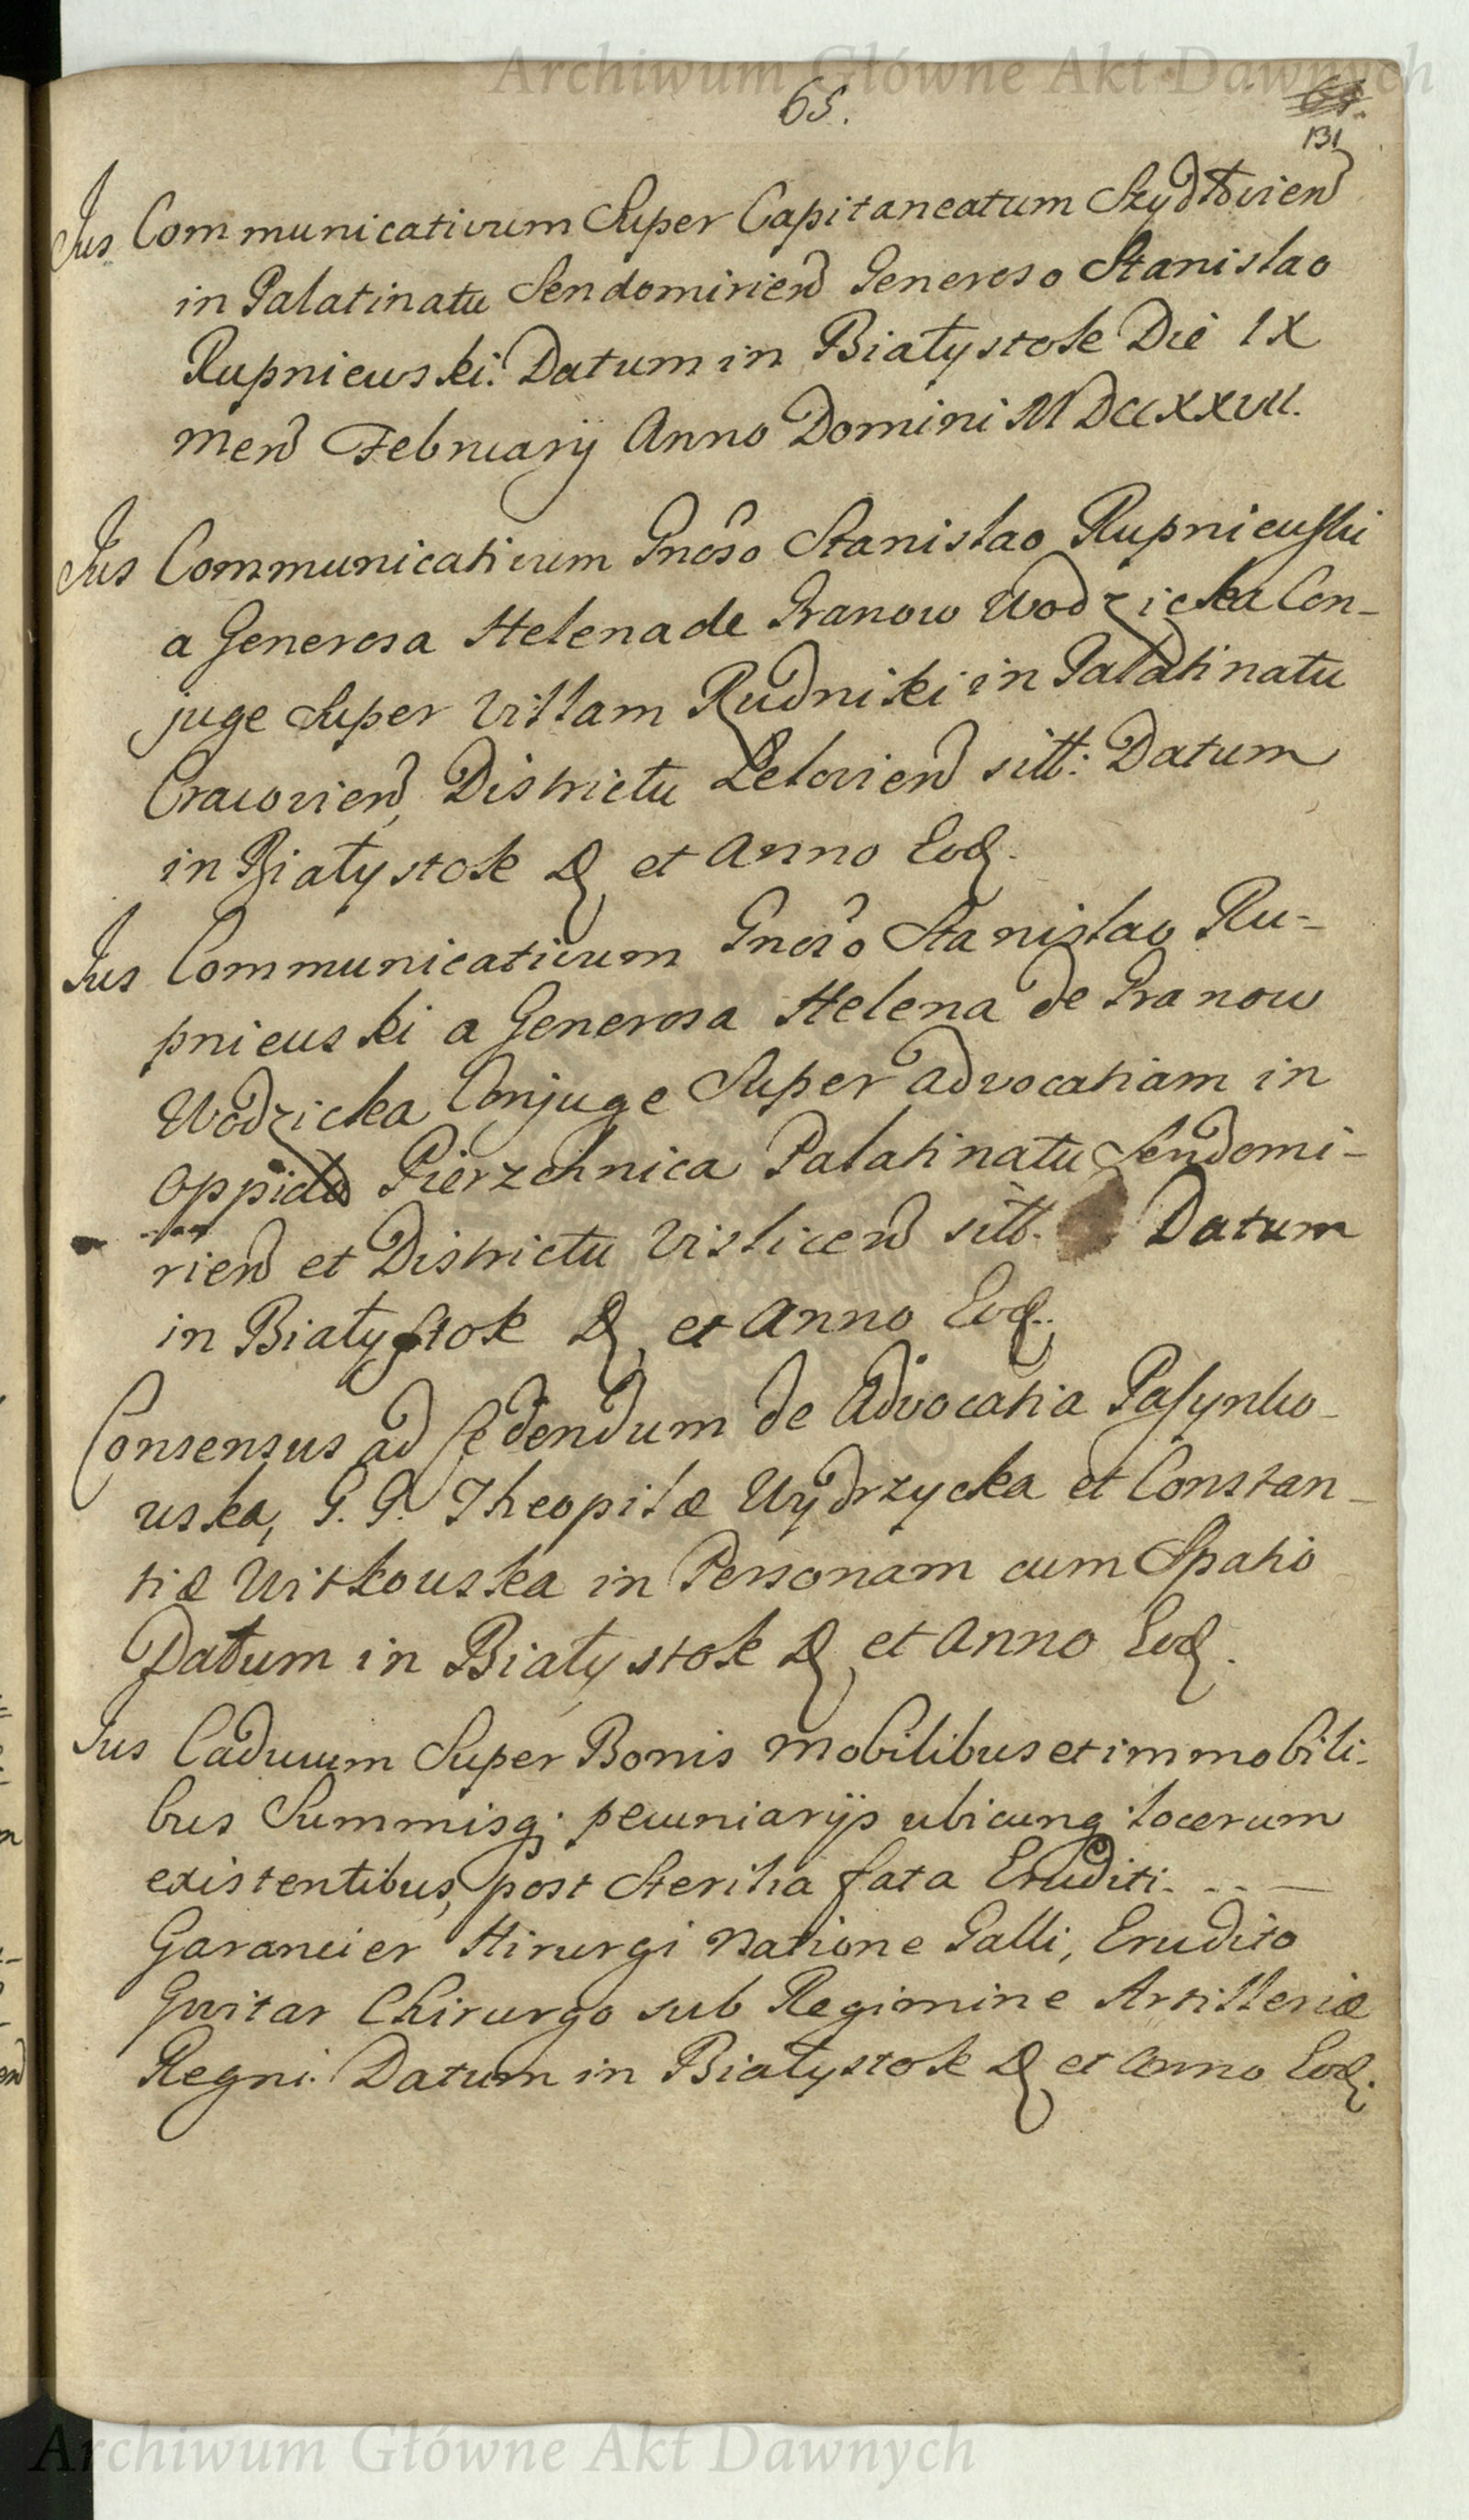 Archiwum Główne Akt Dawnych
65.
131
Jus Communicativum Super Capitaneatum Szydłovien
in Palatinatu Sendomirien Generoso Stanislao
Rupniewski. Datum in Białystok Die IX
Men Februarij Anno Domini MDCCXXVII.
Jus Communicativum Gnoso Stanislao Rupniewski
a Generosa Helena de Granow Wodzicka Con-
juge Super Villam Rudniki in Palatinatu
Cracovien, Districtu Lelovien sitt: Datum
in Białystok D et Anno Eod.
Jus Communicativum Gnoso Stanislao Ru-
pniewski a Generosa Helena de Granow
Wodzicka Conjuge Super advocatiam in
Oppido Pierzchnica Palatinatu Sendomi-
rien et Districtu Vislicen sitt. Datum
in Białystok D et Anno Eod.
Consensus ad cedendum de Advocatia Pasynko-
wska, G. G. Theophilæ Wydrzycka et Constan-
tiæ Witkowska in Personam cum Spatio
Datum in Białystok D et Anno Eod.
Jus Caducum Super Bonis mobilibus et immobili-
bus Summisq; pecuniarijs ubicunq; locorum
existentibus, post Sterilia fata Eruditi. - - —
Garancier Hirurgi Natione Galli, Erudito
Gvitar Chirurgo sub Regimine Artilleriæ
Regni. Datum in Białystok D et Anno Eod.
Archiwum Główne Akt Dawnych